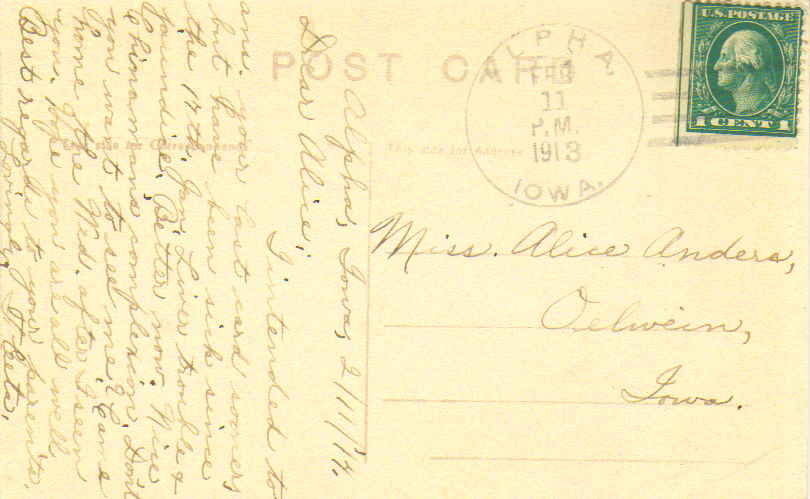 POST CARD
This side for Correspondence
This side for Address
ALPHA,
FEB
11
P.M.
1913
IOWA.
U.S. POSTAGE
1 CENT 1
Miss. Alice Anders,
Oelwein,
Iowa.
Alpha, Iowa, 2/11/14,
Dear Alice;
I intended to
ans. your last card sooner,
but have been sick since
the 17th Jan. Liver trouble &
jaundice. Better now. Nice
Chinamans complexion. Don't
you want to see me? Came
home the Wed. after I seen
you. Hope you are all well.
Best regards to your parents.
Lovingly,